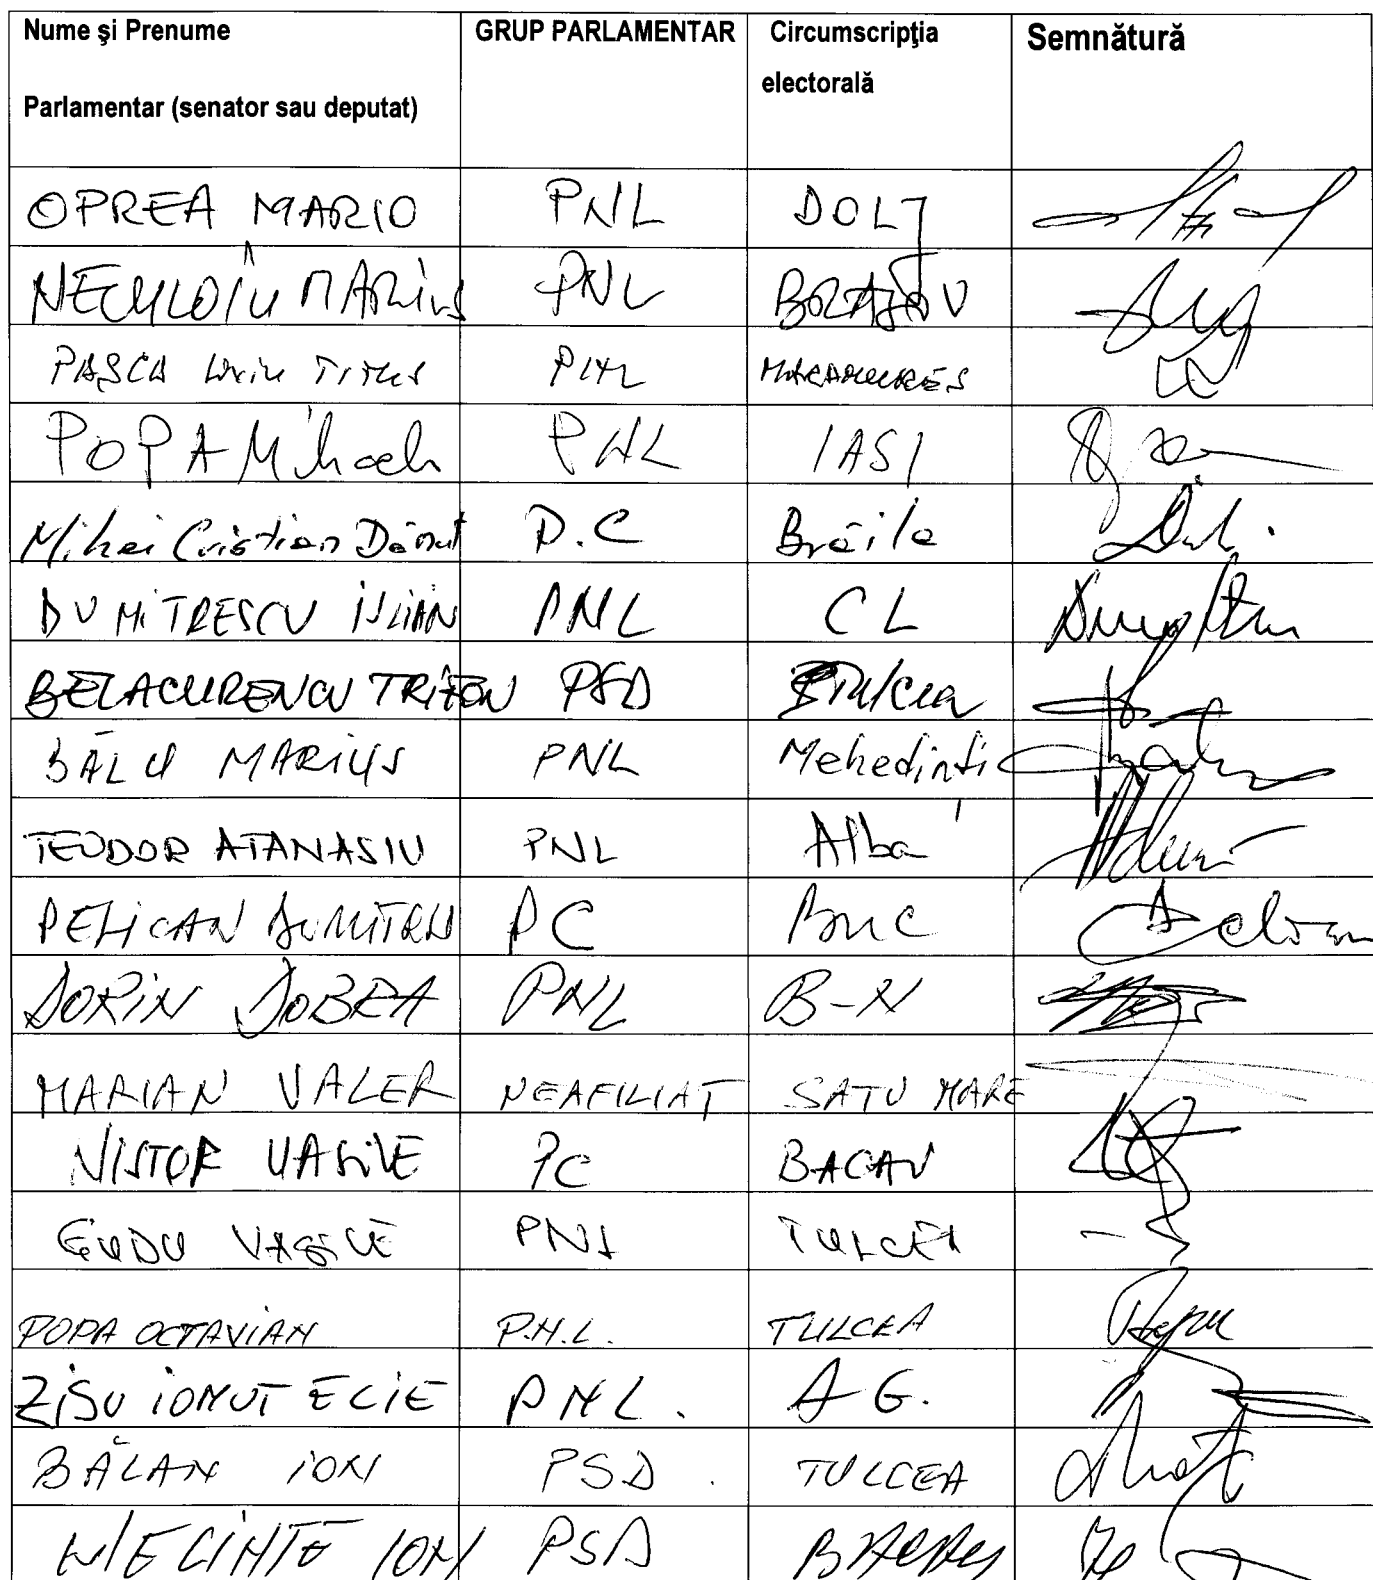 Nume şi Prenume GRUP PARLAMENTAR Circumscripţia Semnătură
electorală
Parlamentar (senator sau deputat)
OPREA MARIO PNL DOLJ
NECULOIU MARIUS PNL BRAŞOV
PAŞCA Liviu TITUS PNL MARAMUREŞ
POPA Mihaela PNL IASI
Mihai Cristian Dănuț P.C Brăila
DUMITRESCU IULIAN PNL CL
BELACURENCU TRIFON PSD Tulcea
BĂLU MARIUS PNL Mehedinți
TEODOR ATANASIU PNL Alba
PELICAN DUMITRU PC Buc
DORIN DOBRA PNL B-N
MARIAN VALER NEAFILIAT SATU MARE
NISTOR VASILE PC BACAU
GUDU VASILE PNL TULCEA
POPA OCTAVIAN P.N.L. TULCEA
ZISU IONUT ELIE PNL. AG.
BĂLAN ION PSD. TULCEA
ION PSD